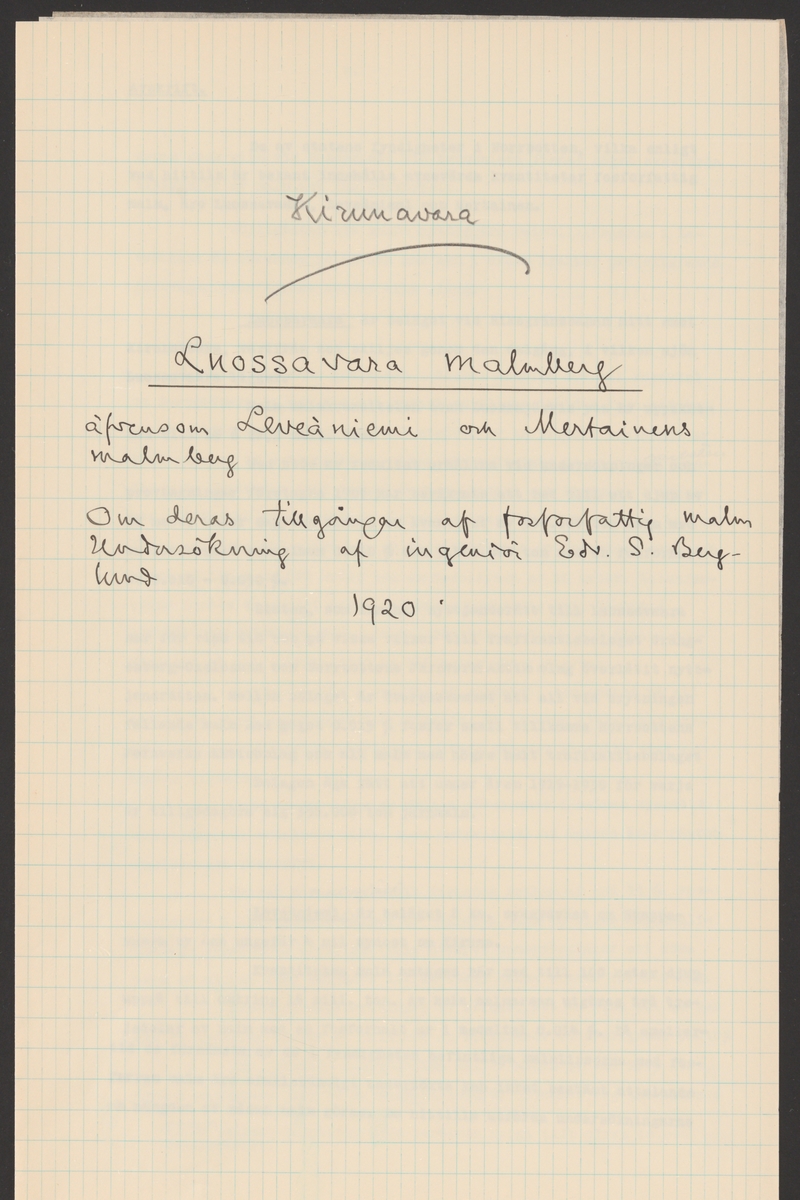 Kirunavara
Luossavara Malmberg
äfvensom Leveäniemi och Mertainens
malmberg
Om deras tillgångar af fosforfattig malm
Undersökning af ingeniör Edv. S. Berg-
lund
1920